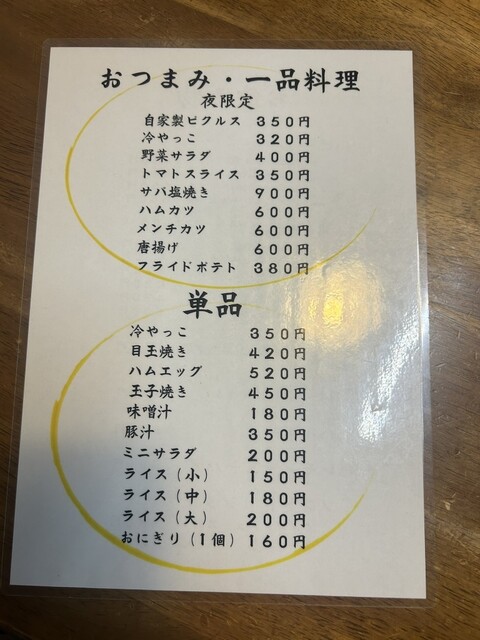 おつまみ・一品料理
夜限定
自家製ピクルス 350円
冷やっこ 320円
野菜サラダ 400円
トマトスライス 350円
サバ塩焼き 900円
ハムカツ 600円
メンチカツ 600円
唐揚げ 600円
フライドポテト 380円
単品
冷やっこ 350円
目玉焼き 420円
ハムエッグ 520円
玉子焼き 450円
味噌汁 180円
豚汁 350円
ミニサラダ 200円
ライス(小) 150円
ライス(中) 180円
ライス(大) 200円
おにぎり(1個) 160円